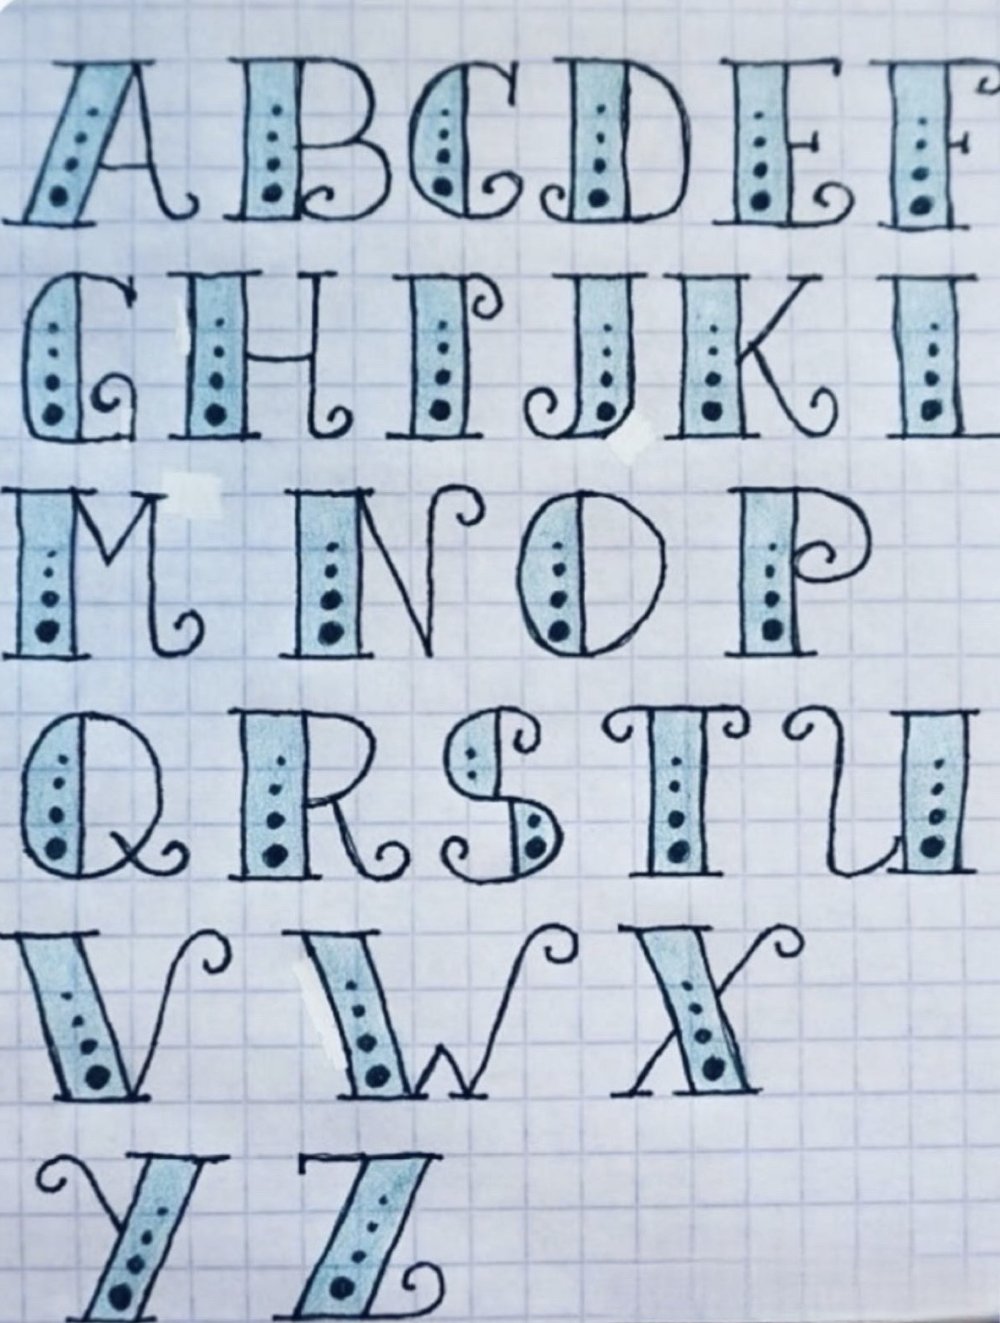 A B C D E F
G H I J K L
M N O P
Q R S T U
V W X
Y Z